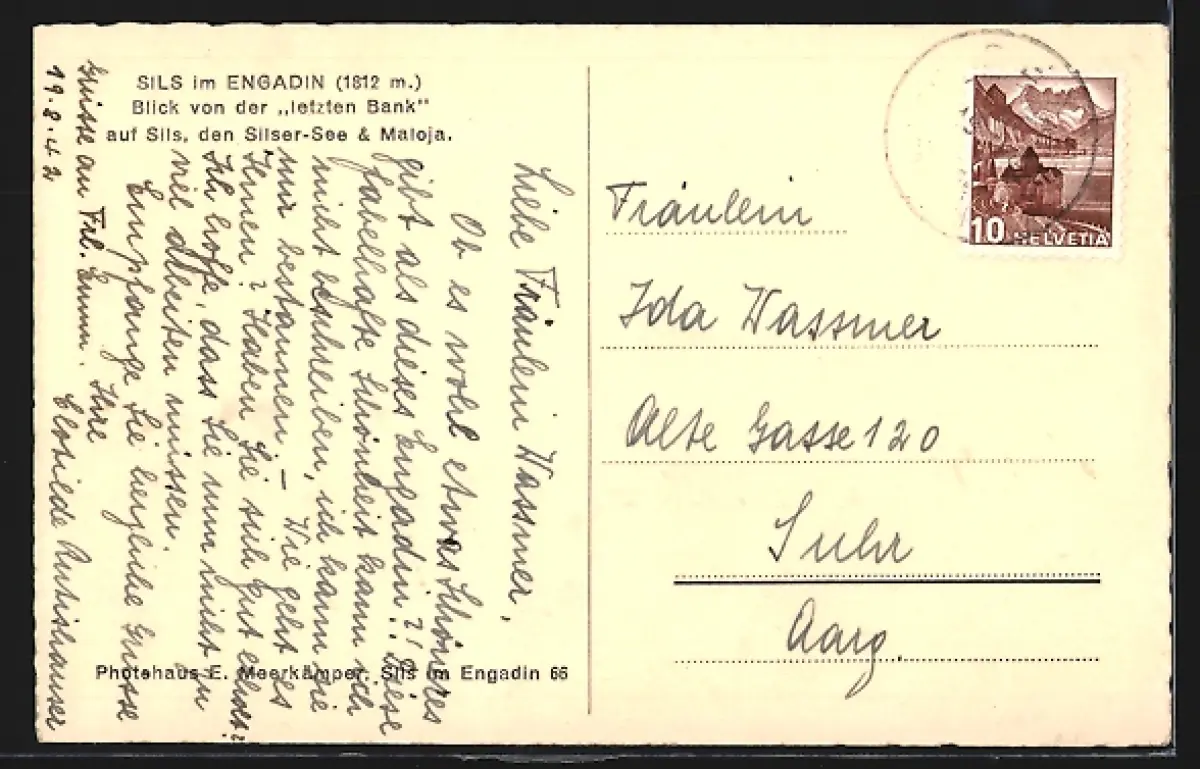 SILS im ENGADIN (1812 m.)
Blick von der „letzten Bank"
auf Sils, den Silser-See & Maloja.
19.8.42
Liebe Fräulein Wassmer,
Ob es wohl etwas Schöneres
gibt als dieses Engadin?! Diese
fabelhafte Schönheit kann ich
nicht beschreiben, ich kann sie
nur bestaunen – Wie geht es
Ihnen? Haben Sie sich gut erholt?
Ich hoffe, dass Sie nun nicht zu
viel arbeiten müssen.
Empfangen Sie herzliche Grüsse
Ihre
Clotilde Rutishauser
Grüsse an Frl. Emm.
Photohaus E. Meerkämper, Sils im Engadin 65
Fräulein
Ida Wassmer
Alte Gasse 120
Suhr
Aarg.
10 HELVETIA